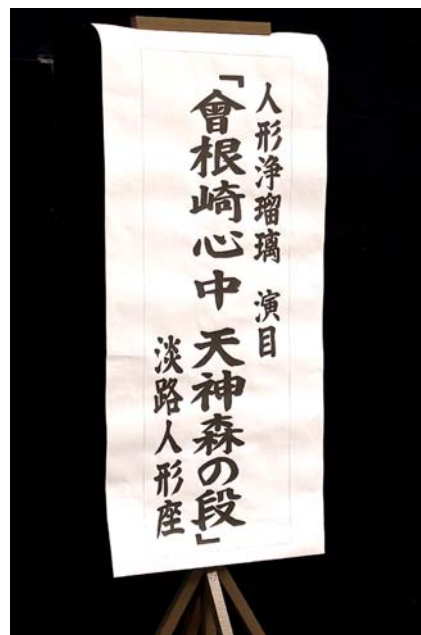 人形浄瑠璃 演目
「曾根崎心中 天神森の段」
淡路人形座